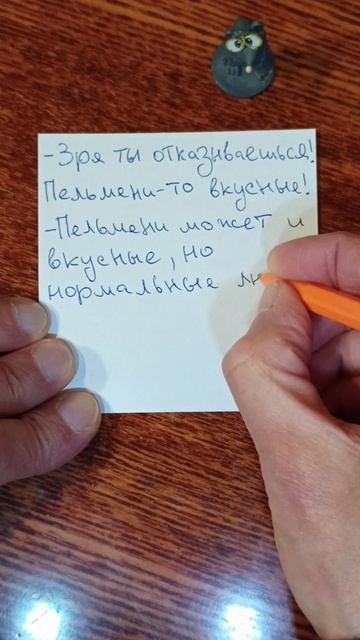 -Зря ты отказываешься!
Пельмени-то вкусные!
-Пельмени может и
вкусные, но
нормальные